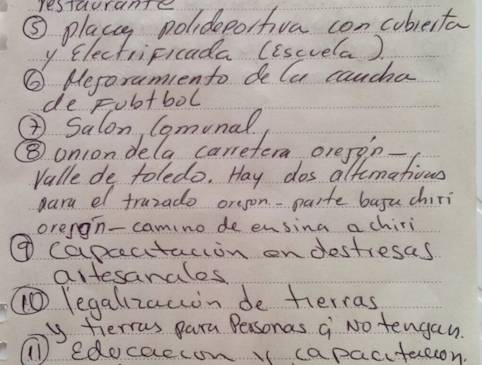 restaurante
⑤ placas polideportiva con cubierta
y Electrificada (Escuela)
⑥ Mejoramiento de la cancha
de Futbol
⑦ Salon Comunal
⑧ union de la carretera oregón -
Valle de toledo. Hay dos alternativas
para el trazado oregon - parte baja chiri
oregon - camino de ensina a chiri
⑨ capacitación en destresas
artesanales
⑩ legalizacion de tierras
y tierras para Personas q' No tengan.
⑪ Educacion y capacitacion.